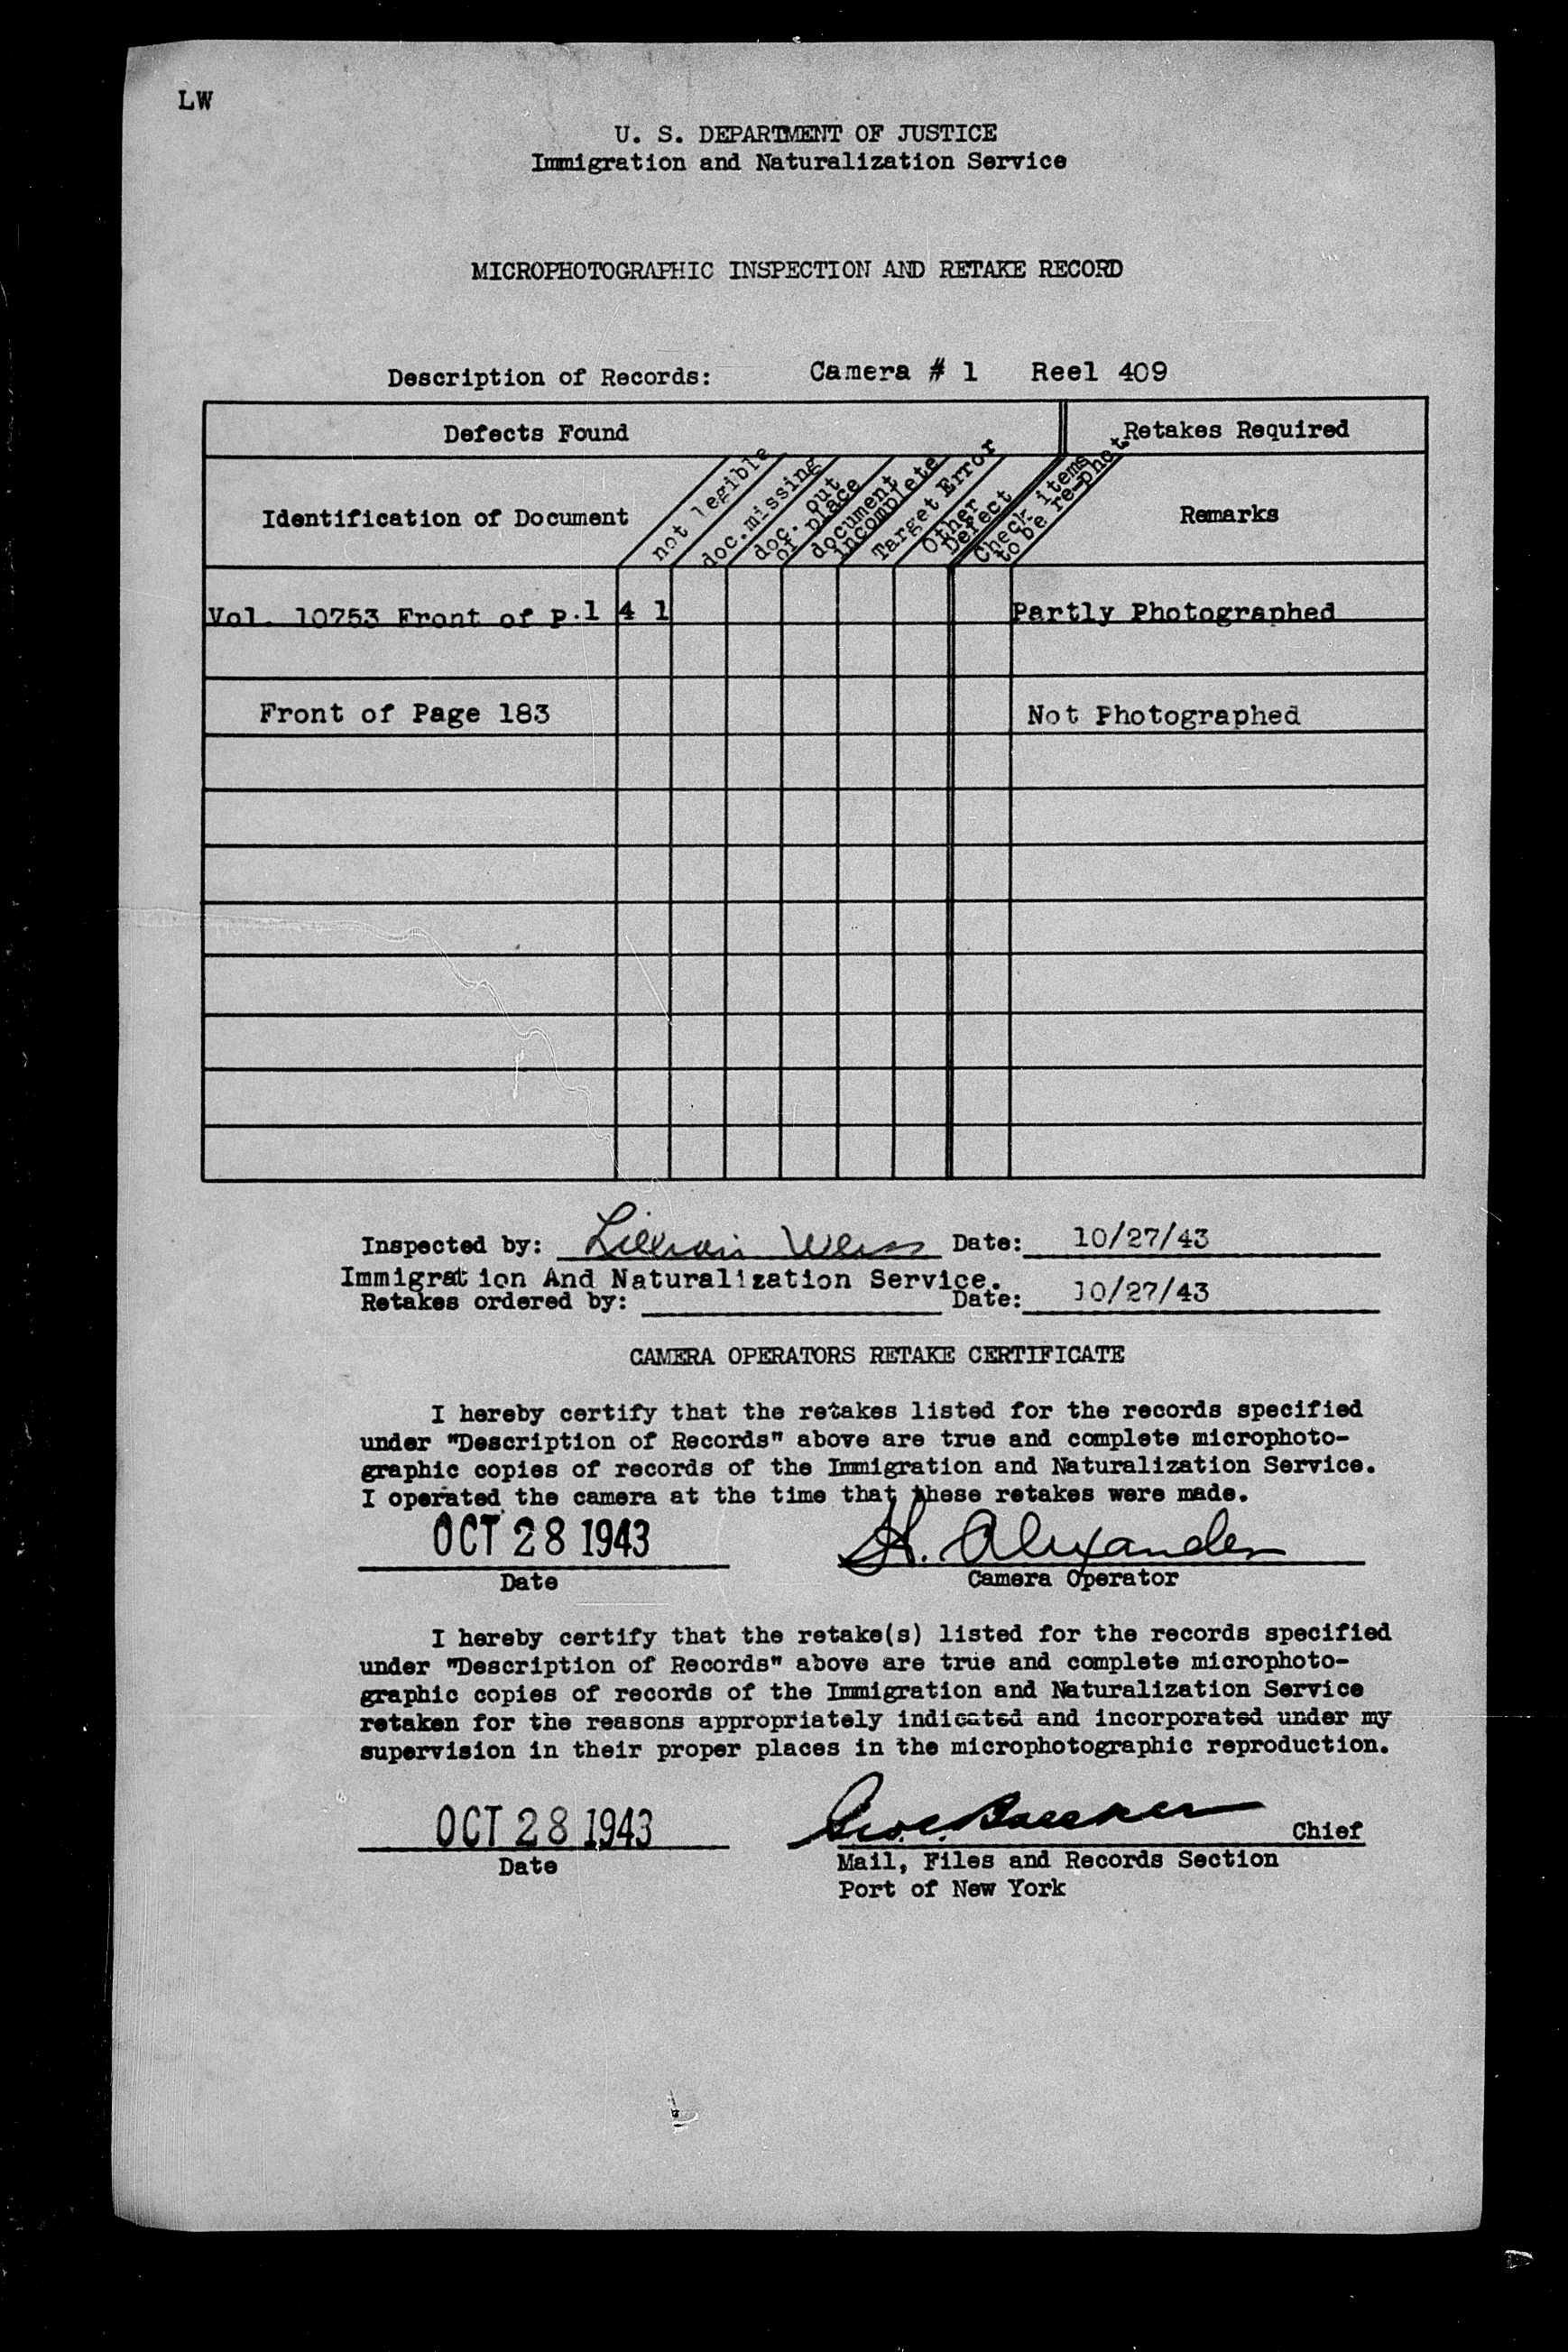 LW
U. S. DEPARTMENT OF JUSTICE
Immigration and Naturalization Service
MICROPHOTOGRAPHIC INSPECTION AND RETAKE RECORD
Description of Records: Camera # 1 Reel 409
Defects Found
Retakes Required
Identification of Document
not legible
doc.missing
doc. out
of place
document
incomplete
Target Error
Other
Defect
Check items
to be re-phot.
Remarks
Vol. 10753 Front of p.1 4 1 Partly Photographed
Front of Page 183 Not Photographed
Inspected by: Lillian Weiss Date: 10/27/43
Immigration And Naturalization Service.
Retakes ordered by: Date: 10/27/43
CAMERA OPERATORS RETAKE CERTIFICATE
I hereby certify that the retakes listed for the records specified
under "Description of Records" above are true and complete microphoto-
graphic copies of records of the Immigration and Naturalization Service.
I operated the camera at the time that these retakes were made.
OCT 28 1943 H. Alexander
Date Camera Operator
I hereby certify that the retake(s) listed for the records specified
under "Description of Records" above are true and complete microphoto-
graphic copies of records of the Immigration and Naturalization Service
retaken for the reasons appropriately indicated and incorporated under my
supervision in their proper places in the microphotographic reproduction.
OCT 28 1943 Chief
Date Mail, Files and Records Section
Port of New York